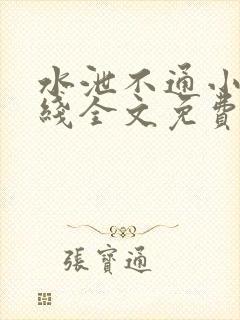 水泄不通小
綫全文免費
張寶通